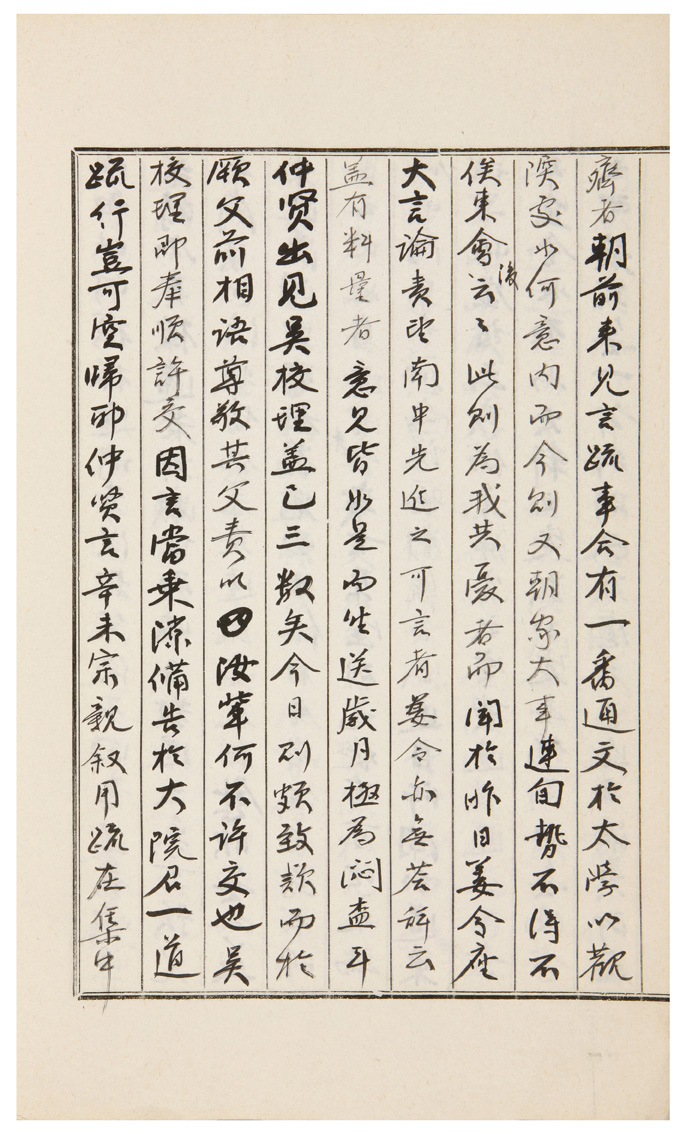 齊者朝前來見言疏事会有一番通文於太學以観
深處如何意內而今則又朝家大事連旬勢不得不
俟東會後云〻此則為我共憂者而聞於昨日姜令座
大言論責望南中先進之可言者姜令亦無荅辞云
盖有料量者意見皆如是而坐送歲月極為悶盍耳
仲贤出见吴校理盖已三数矣今日則頗致款而於
厥父前相语尊敬其父责以汝輩何不许交也吴
校理即奉順許交因言當乗深備告於大院君一道
疏行豈可空歸耶仲贤言辛未宗親叙用疏在集中